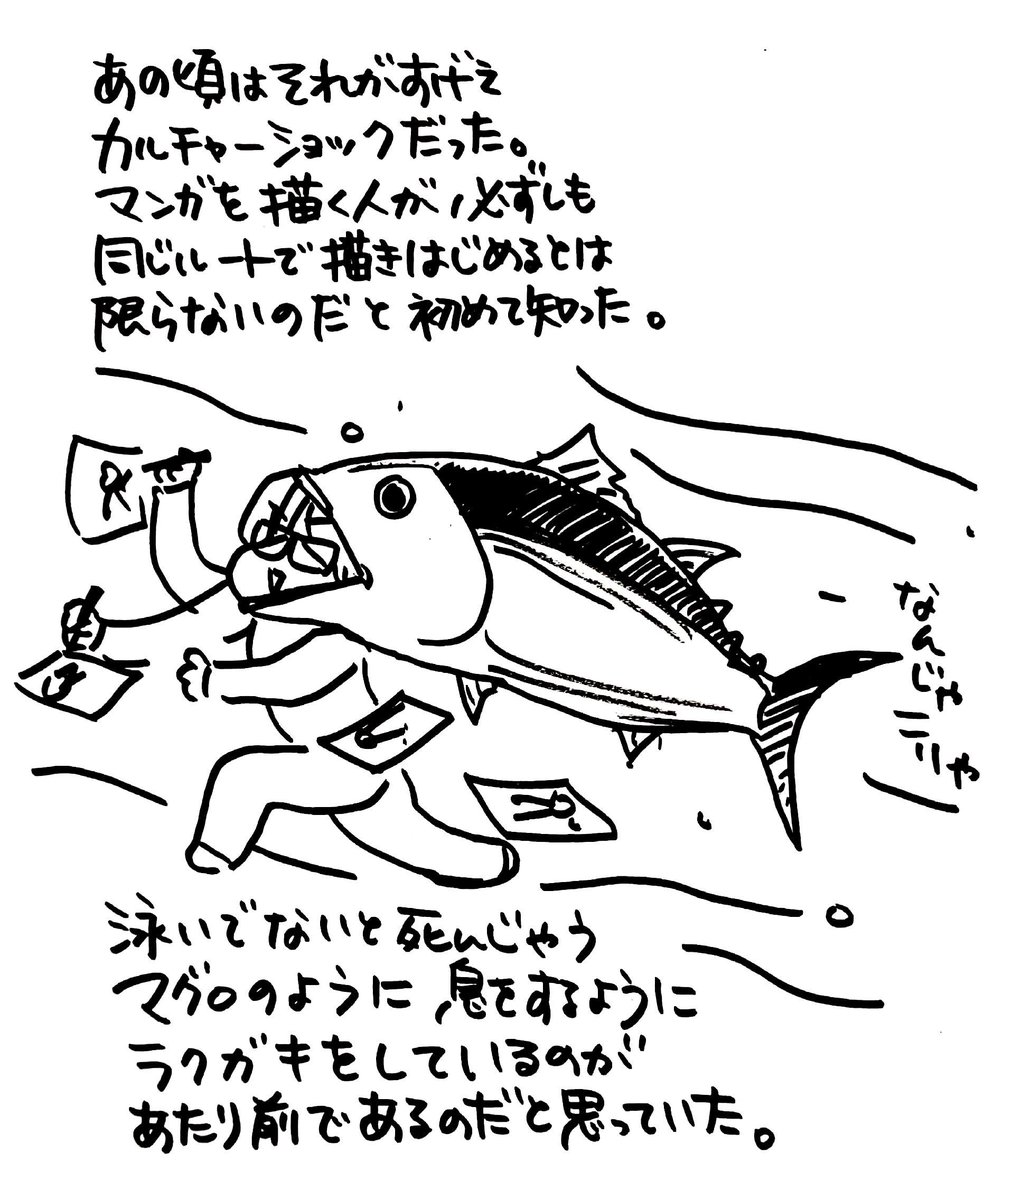 あの頃はそれがすげえ
カルチャーショックだった。
マンガを描く人が必ずしも
同じルートで描きはじめるとは
限らないのだと初めて知った。
なんじゃ
こりゃ
泳いでないと死んじゃう
マグロのように息をするように
ラクガキをしているのが
あたり前であるのだと思っていた。